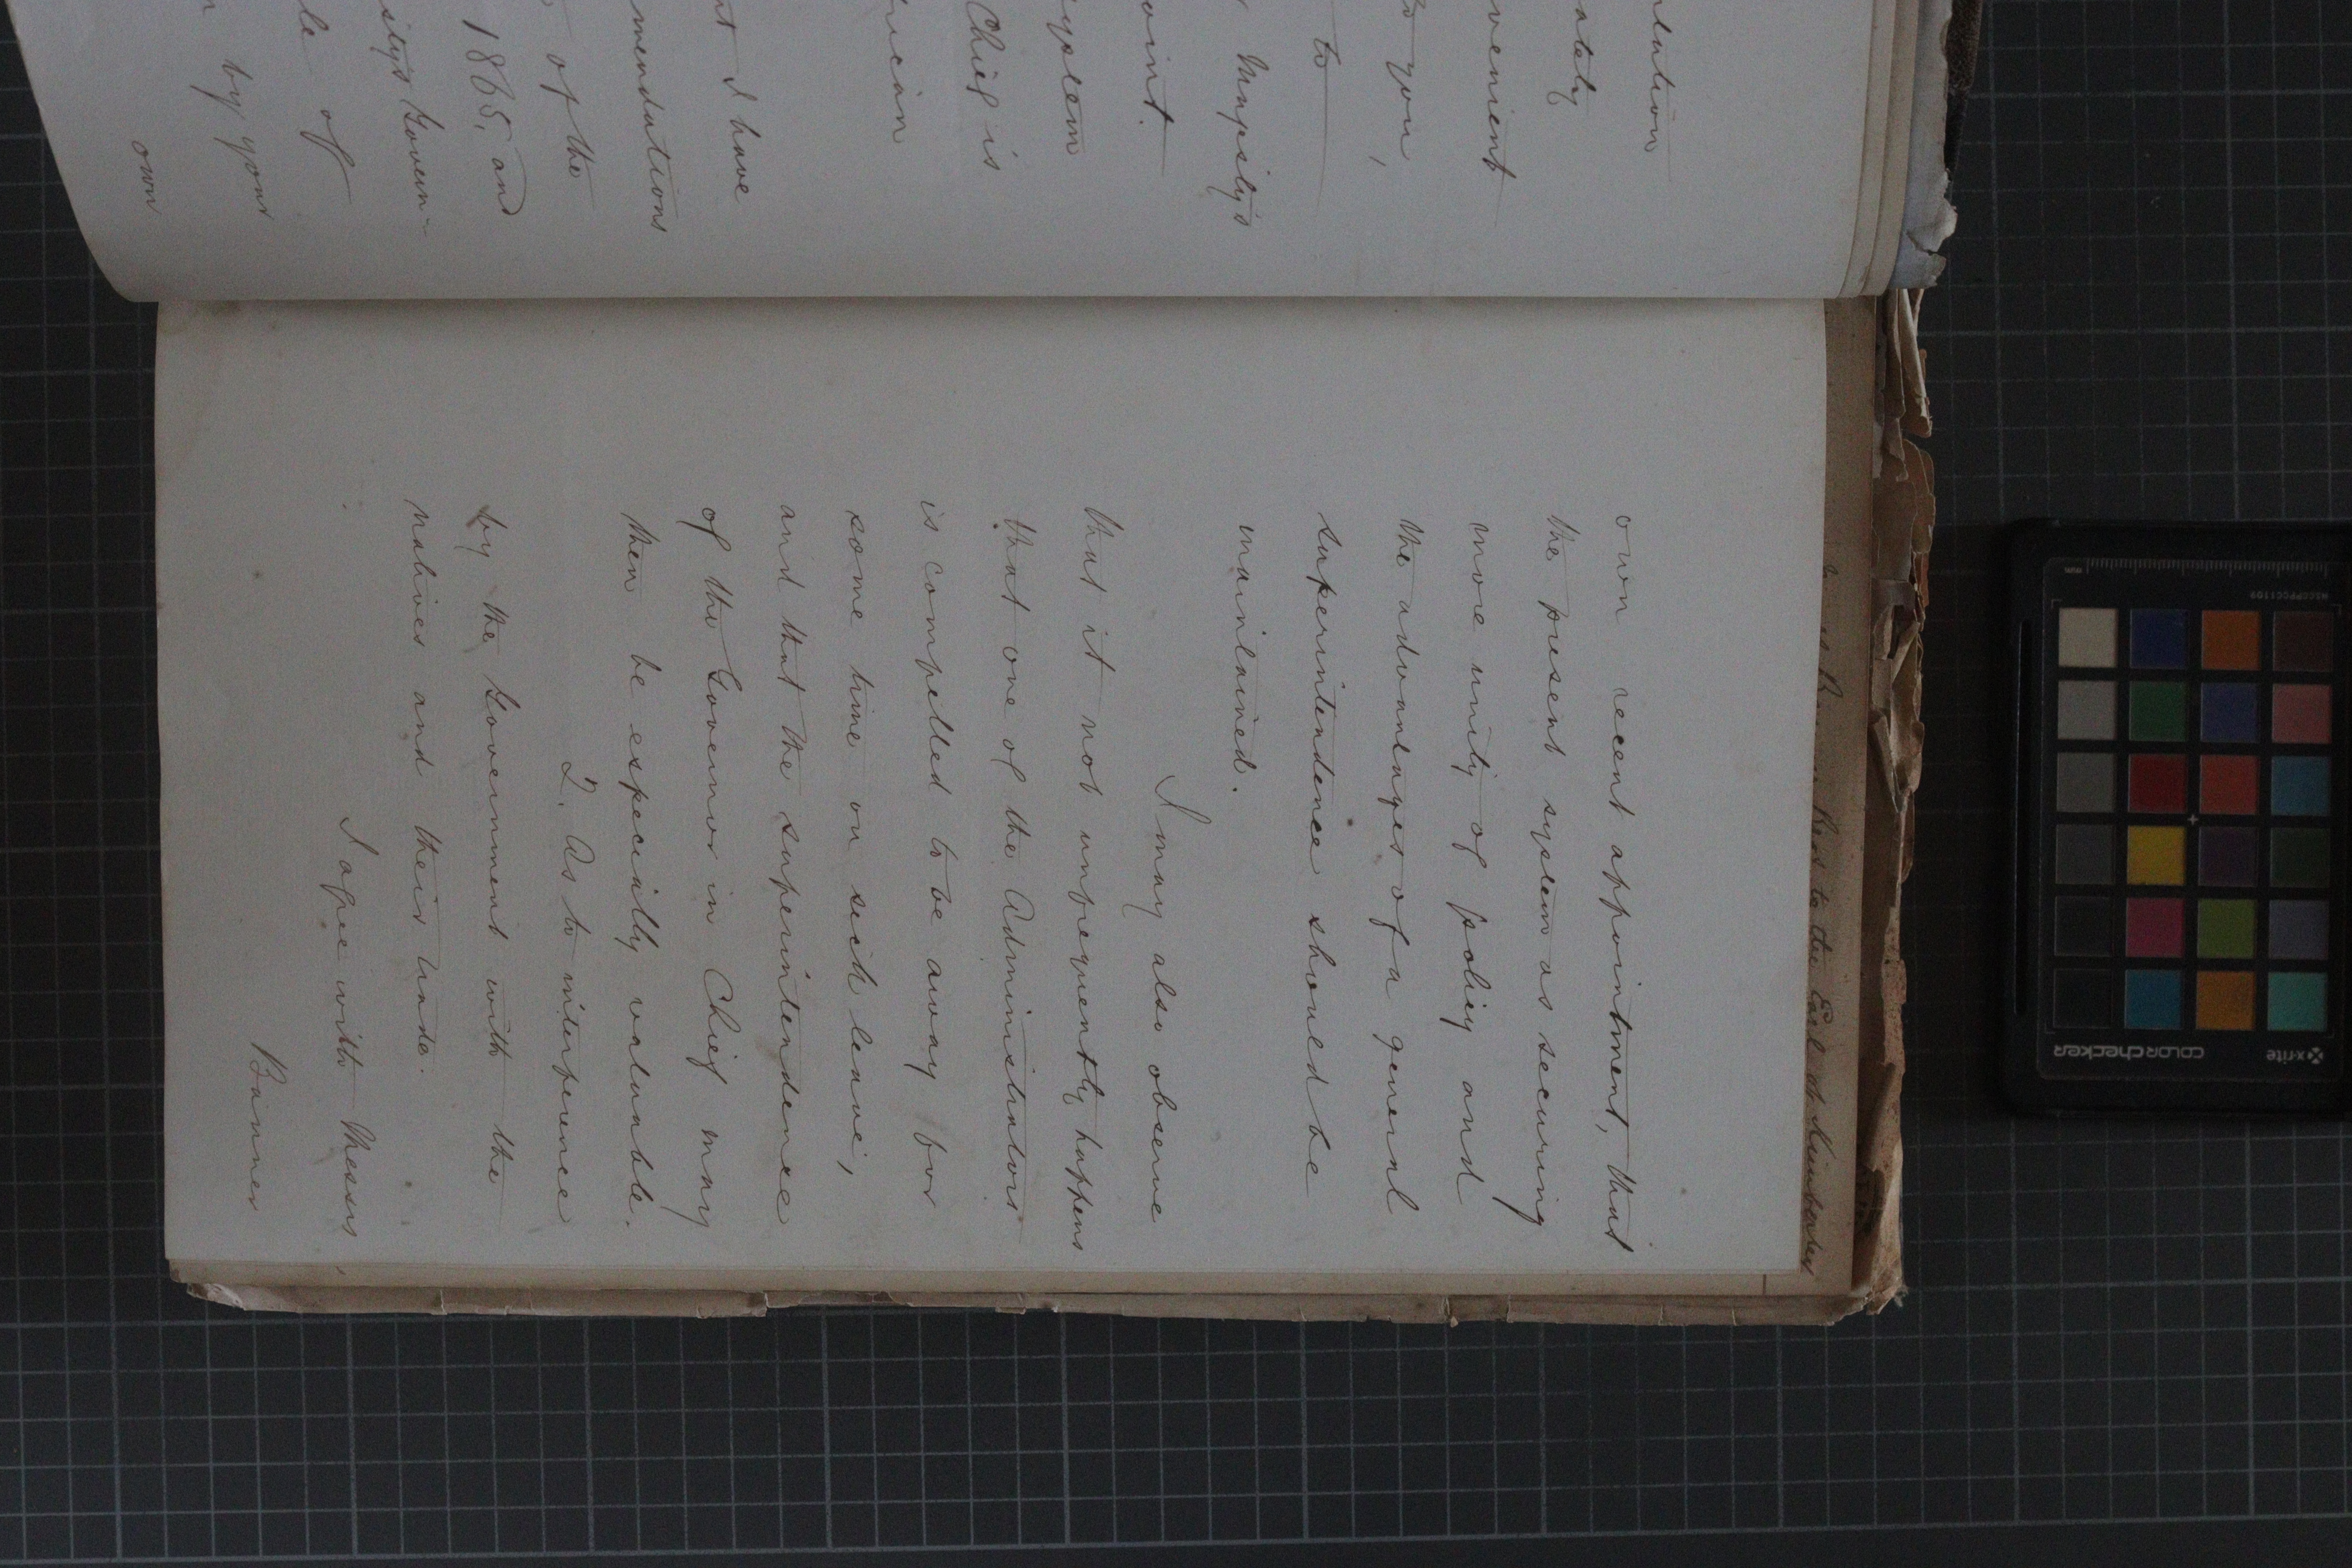 lution
ately
venient
to you,
to
Majesty's
oint.
system
Chief is
rican
I have
mendations
of the
1865, and
sty's Govern-
le of
by your
own
own recent appointment, that
the present system as securing
more unity of policy and
the advantages of a general
superintendence should be
maintained.
I may also observe
that it not unfrequently happens
that one of the Administrators
is compelled to be away for
some time on sick leave,
and that the superintendence
of the Governor in Chief may
then be especially valuable.
2. As to interference
by the Government with the
natives and their trade.
I agree with Messrs
Banner
to the Earl of Kimberley
x-rite
colorchecker
mm